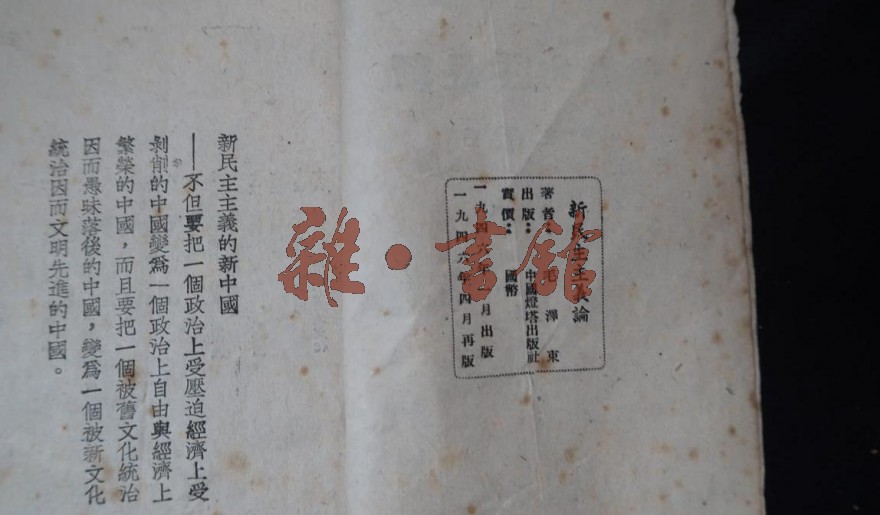 新民主主義論
著者：毛澤東
出版：中國燈塔出版社
實價：國幣
一九四六年月出版
一九四六年四月再版
新民主主義的新中國
——不但要把一個政治上受壓迫經濟上受
剝削的中國變爲一個政治上自由與經濟上
繁榮的中國，而且要把一個被舊文化統治
因而愚昧落後的中國，變爲一個被新文化
統治因而文明先進的中國。
雜·書館